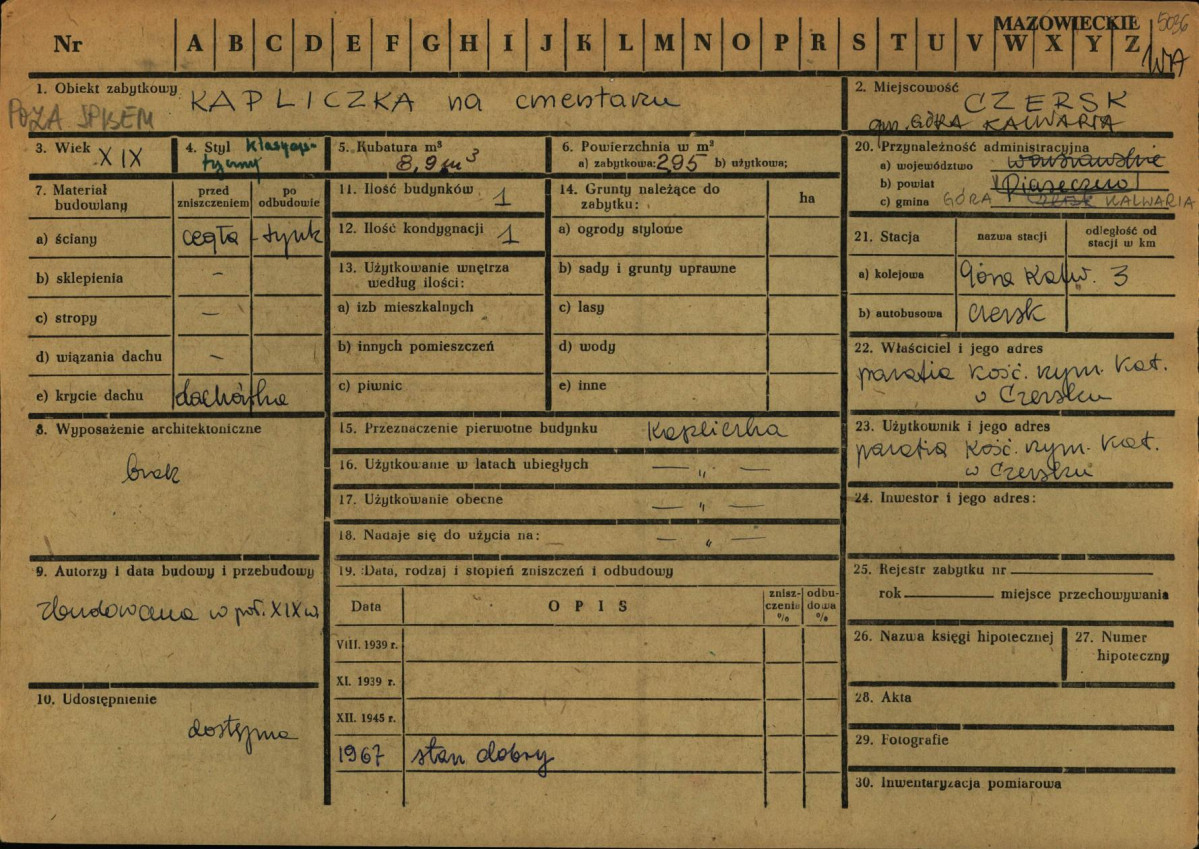 MAZOWIECKIE 5036
Nr A B C D E F G H I J K L M N O P R S T U V W X Y Z
WA
1. Obiekt zabytkowy KAPLICZKA na cmentarzu
POZA SPISEM
2. Miejscowość CZERSK
gm. GÓRA KALWARIA
3. Wiek XIX
4. Styl klasycystyczny
5. Kubatura m³ 8,9 m³
6. Powierzchnia w m²
a) zabytkowa: 295 b) użytkowa;
20. Przynależność administracyjna
a) województwo warszawskie
b) powiat Piaseczno
c) gmina GÓRA KALWARIA
7. Materiał budowlany
przed zniszczeniem
po odbudowie
a) ściany cegła - tynk
b) sklepienia –
c) stropy –
d) wiązania dachu –
e) krycie dachu dachówka
11. Ilość budynków 1
12. Ilość kondygnacji 1
13. Użytkowanie wnętrza
według ilości:
a) izb mieszkalnych
b) innych pomieszczeń
c) piwnic
14. Grunty należące do
zabytku:
ha
a) ogrody stylowe
b) sady i grunty uprawne
c) lasy
d) wody
e) inne
21. Stacja
nazwa stacji
odległość od
stacji w km
a) kolejowa Góra Kalw. 3
b) autobusowa Czersk
22. Właściciel i jego adres
parafia kość. rzym. kat.
w Czersku
8. Wyposażenie architektoniczne
brak
15. Przeznaczenie pierwotne budynku kapliczka
16. Użytkowanie w latach ubiegłych — „ —
17. Użytkowanie obecne — „ —
18. Nadaje się do użycia na: — „ —
23. Użytkownik i jego adres
parafia kość. rzym. kat.
w Czersku
24. Inwestor i jego adres:
9. Autorzy i data budowy i przebudowy
zbudowana w poł. XIX w
19. Data, rodzaj i stopień zniszczeń i odbudowy
Data
OPIS
znisz-
czenie
%
odbu-
dowa
%
VIII. 1939 r.
XI. 1939 r.
XII. 1945 r.
1967 stan dobry
25. Rejestr zabytku nr
rok miejsce przechowywania
26. Nazwa księgi hipotecznej
27. Numer
hipoteczny
10. Udostępnienie
dostępna
28. Akta
29. Fotografie
30. Inwentaryzacja pomiarowa